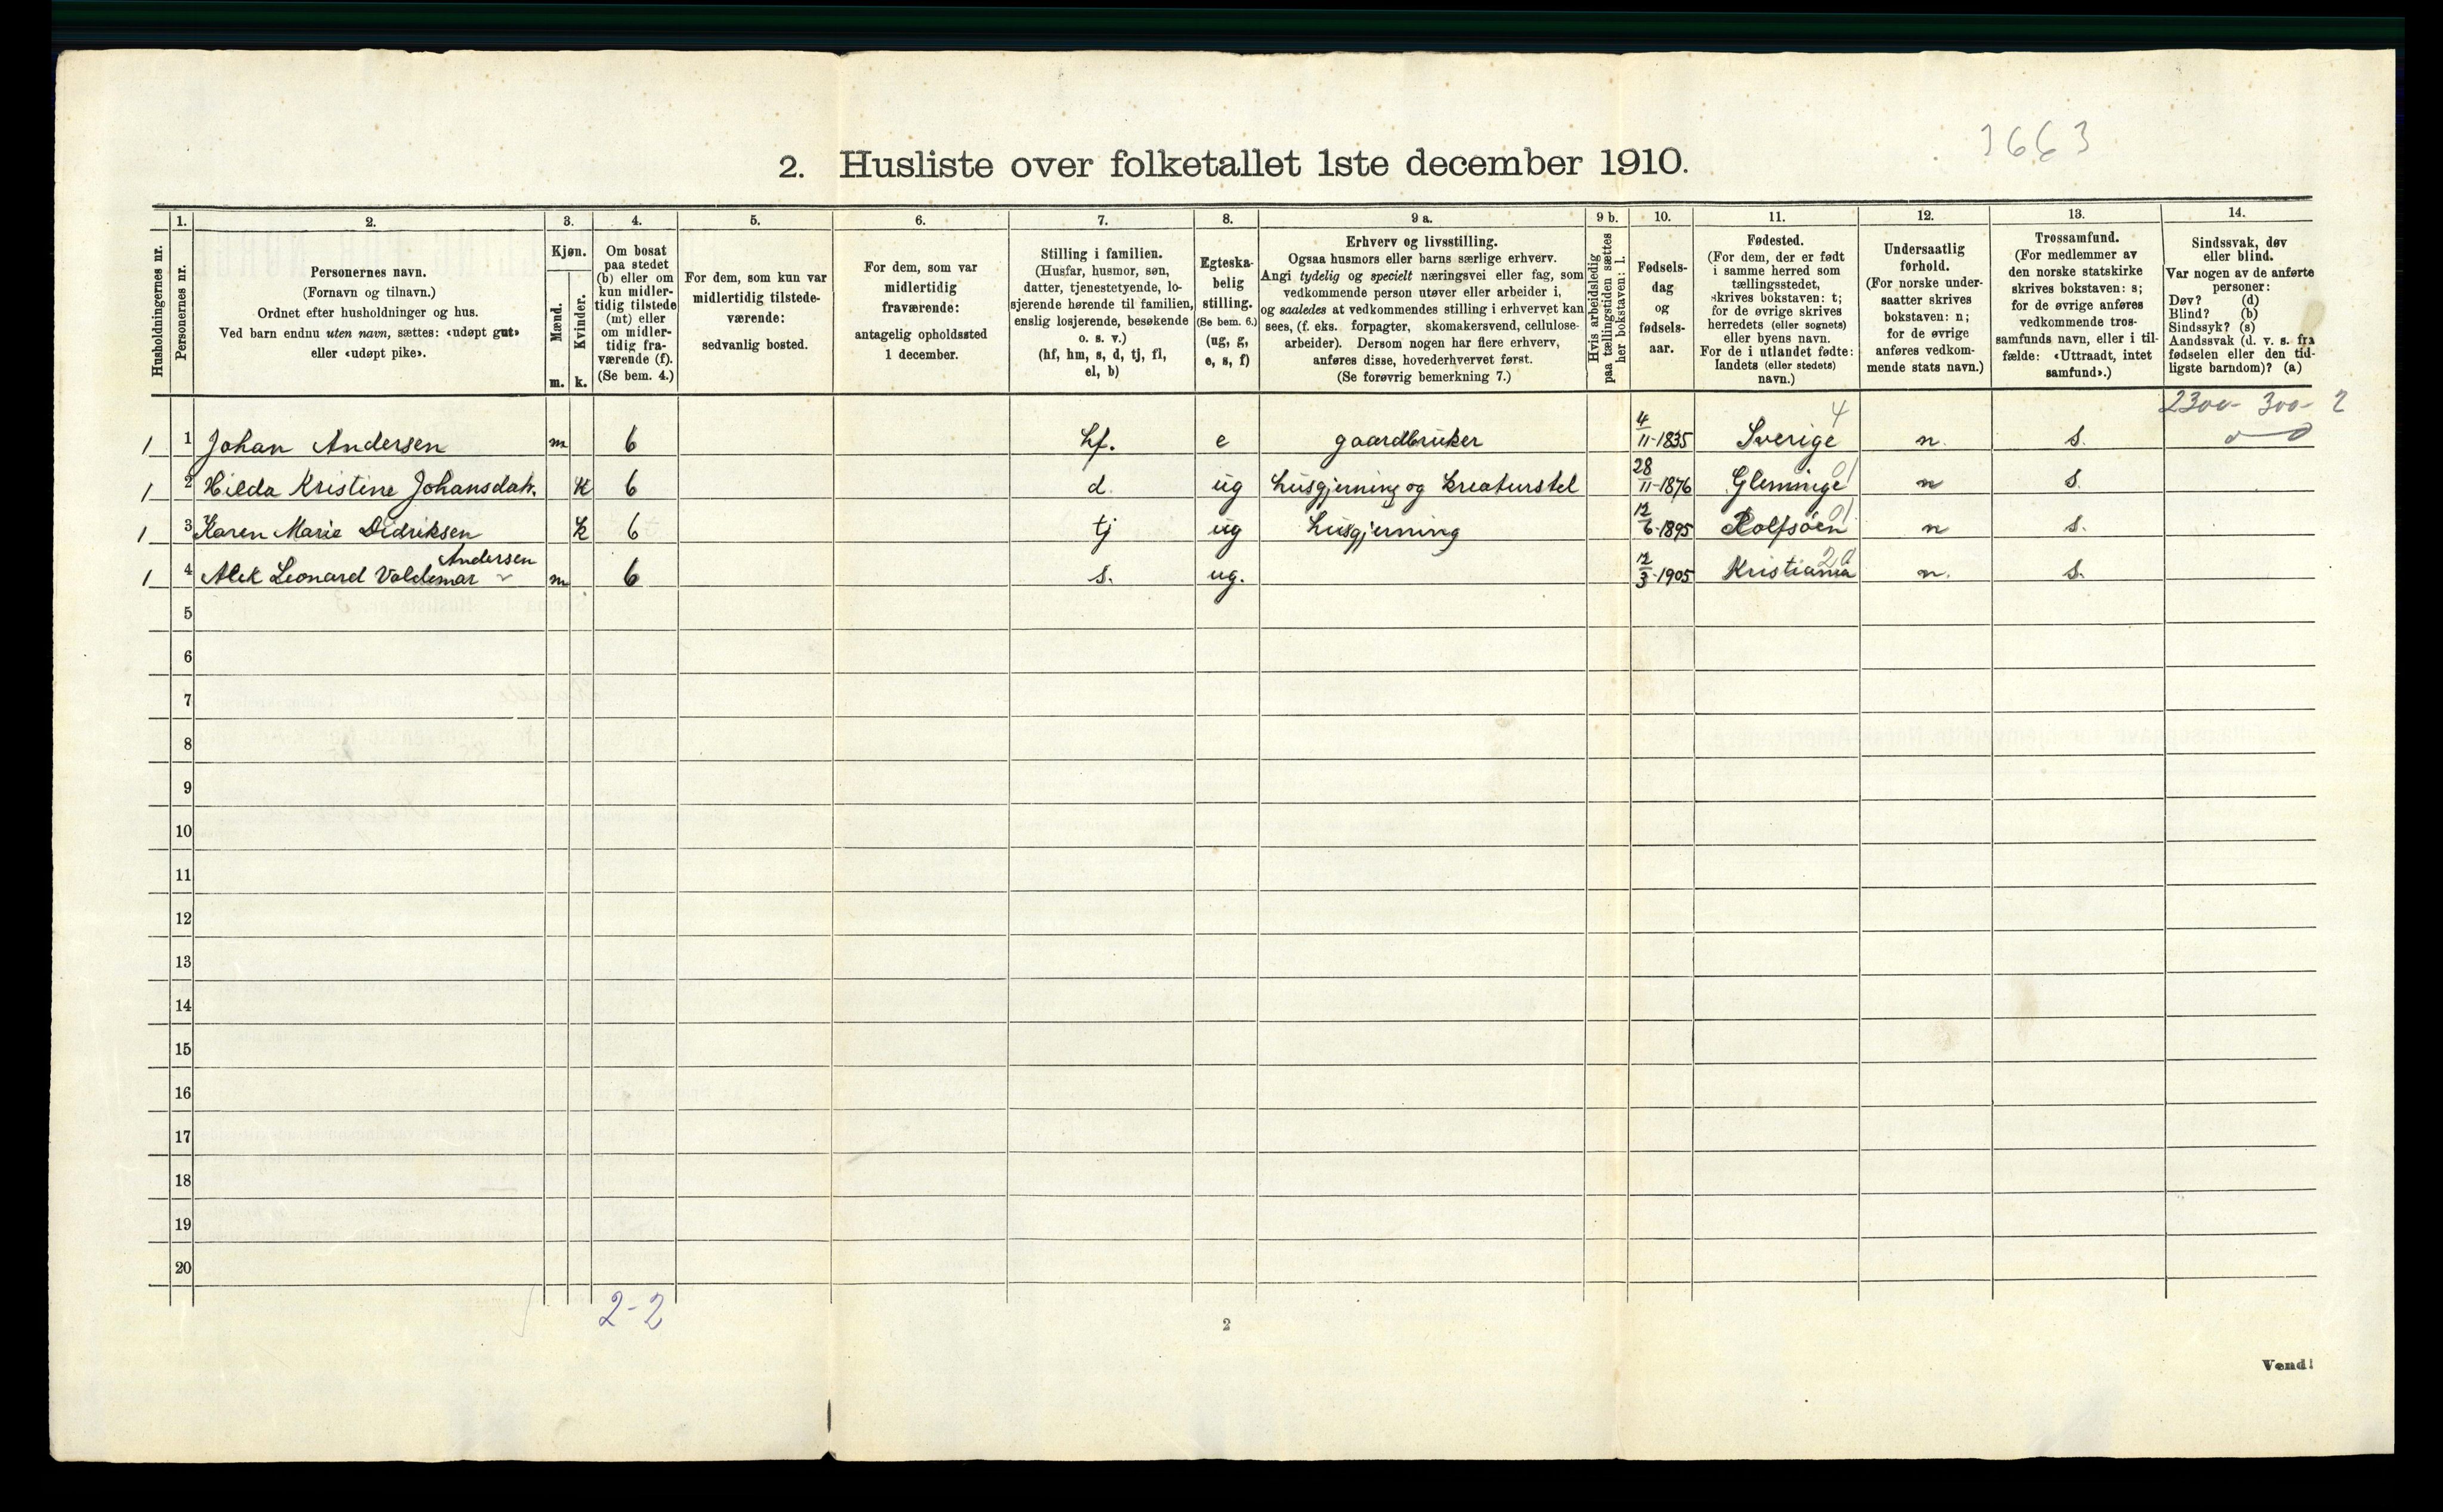 3663
2. Husliste over folketallet 1ste december 1910.
Husholdningernes nr.
1.
Personernes nr.
2.
Personernes navn.
(Fornavn og tilnavn.)
Ordnet efter husholdninger og hus.
Ved barn endnu uten navn, sættes: «udøpt gut»
eller «udøpt pike».
3.
Kjøn.
Mænd.
Kvinder.
m. k.
4.
Om bosat
paa stedet
(b) eller om
kun midler-
tidig tilstede
(mt) eller
om midler-
tidig fra-
værende (f).
(Se bem. 4.)
5.
For dem, som kun var
midlertidig tilstede-
værende:
sedvanlig bosted.
6.
For dem, som var
midlertidig
fraværende:
antagelig opholdssted
1 december.
7.
Stilling i familien.
(Husfar, husmor, søn,
datter, tjenestetyende, lo-
sjerende hørende til familien,
enslig losjerende, besøkende
o. s. v.)
(hf, hm, s, d, tj, fl,
el, b)
8.
Egteska-
belig
stilling.
(Se bem. 6.)
(ug, g,
e, s, f)
9 a.
Erhverv og livsstilling.
Ogsaa husmors eller barns særlige erhverv.
Angi tydelig og specielt næringsvei eller fag, som
vedkommende person utøver eller arbeider i,
og saaledes at vedkommendes stilling i erhvervet kan
sees, (f. eks. forpagter, skomakersvend, cellulose-
arbeider). Dersom nogen har flere erhverv,
anføres disse, hovederhvervet først.
(Se forøvrig bemerkning 7.)
9 b.
Hvis arbeidsledig
paa tællingstiden sættes
her bokstaven: l.
10.
Fødsels-
dag
og
fødsels-
aar.
11.
Fødested.
(For dem, der er født
i samme herred som
tællingsstedet,
skrives bokstaven: t;
for de øvrige skrives
herredets (eller sognets)
eller byens navn.
For de i utlandet fødte:
landets (eller stedets)
navn.)
12.
Undersaatlig
forhold.
(For norske under-
saatter skrives
bokstaven: n;
for de øvrige
anføres vedkom-
mende stats navn.)
13.
Trossamfund.
(For medlemmer av
den norske statskirke
skrives bokstaven: s;
for de øvrige anføres
vedkommende tros-
samfunds navn, eller i til-
fælde: «Uttraadt, intet
samfund».)
14.
Sindssvak, døv
eller blind.
Var nogen av de anførte
personer:
Døv? (d)
Blind? (b)
Sindssyk? (s)
Aandssvak (d. v. s. fra
fødselen eller den tid-
ligste barndom)? (a)
4 2300- 300- 2
1 1 Johan Andersen m b hf. e gaardbruker 4/11-1835 Sverige n. s. 0 0
1 2 Hilda Kristine Johansdatr. k b d. ug husgjerning og kreaturstel 28/11-1876 Glemmige 01 n s.
1 3 Karen Marie Didriksen k b tj ug husgjerning 12/6-1895 Rolfsøen 01 n s.
Andersen
1 4 Alek Leonard Valdemar m b s. ug. 12/3-1905 Kristiania 20 n. s.
5
6
7
8
9
10
11
12
13
14
15
16
17
18
19
20
2-2
2
Vend!